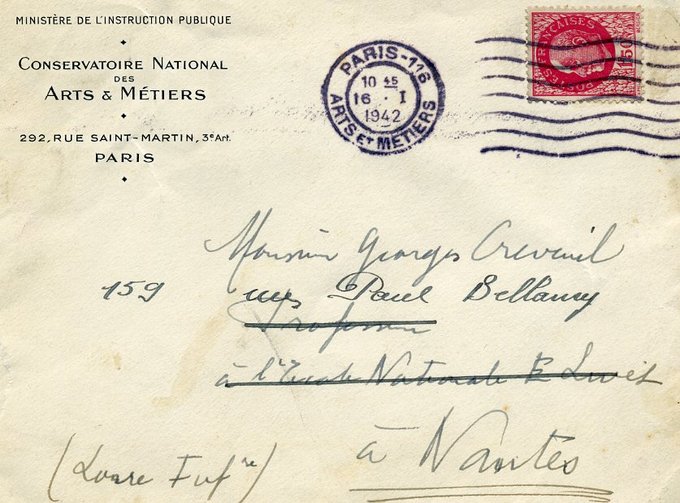 MINISTÈRE DE L'INSTRUCTION PUBLIQUE
CONSERVATOIRE NATIONAL
DES
ARTS & MÉTIERS
292, RUE SAINT-MARTIN, 3e Arr.
PARIS
PARIS-116
10 45
16 · I
1942
ARTS ET METIERS
POSTES FRANÇAISES
1F50
Monsieur Georges Creveuil
159 rue Paul Bellamy
Professeur
à l'Ecole Nationale
à Nantes
(Loire Infre)